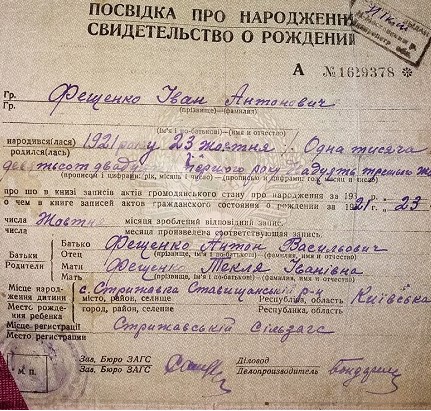 ПОСВІДКА ПРО НАРОДЖЕНН
СВИДЕТЕЛЬСТВО О РОЖДЕНИИ
А №1629378 *
Гр. Фещенко Іван Антонович
Гр. (прізвище)—(фамилия)
(ім'я і по-батькові)—(имя и отчество)
народився(лася) 1921 року 23 жовтня Одна тисяча
родился(лась)
девятсот двадц первого року двадцять третього
(прописом і цифрами: рік, місяць і число)
про що в книзі записів актів громадянського стану про народження за 19
о чем в книге записей актов гражданского состояния о рождении за 1921 г. 23
числа Жовтня місяця зроблений відповідний запис.
числа месяца произведена соответствующая запись.
Батьки Батько Фещенко Антон Васильович
Родители Отец (прізвище, ім'я і по-батькові)—(фамилия, имя и отчество)
Мати Фещенко Текля Іванівна
Мать (прізвище, ім'я і по-батькові)—(фамилия, имя и отчество)
Місце народження дитини с. Стрижавка Ставищанськ р-н Київська
місто, район, селище Республіка, область
Место рождения ребенка город, район, селение Республика, область
Місце реєстрації Стрижавській Сільзагс
Место регистрации
М. П.
Зав. Бюро ЗАГС Діловод
Зав. Бюро ЗАГС Делопроизводитель